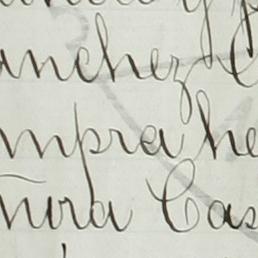 anchez
mpra he
ñora Cas